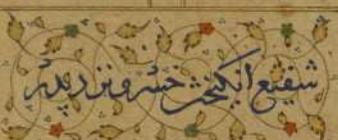 شفیع انگیختن خسرو نزد پدر